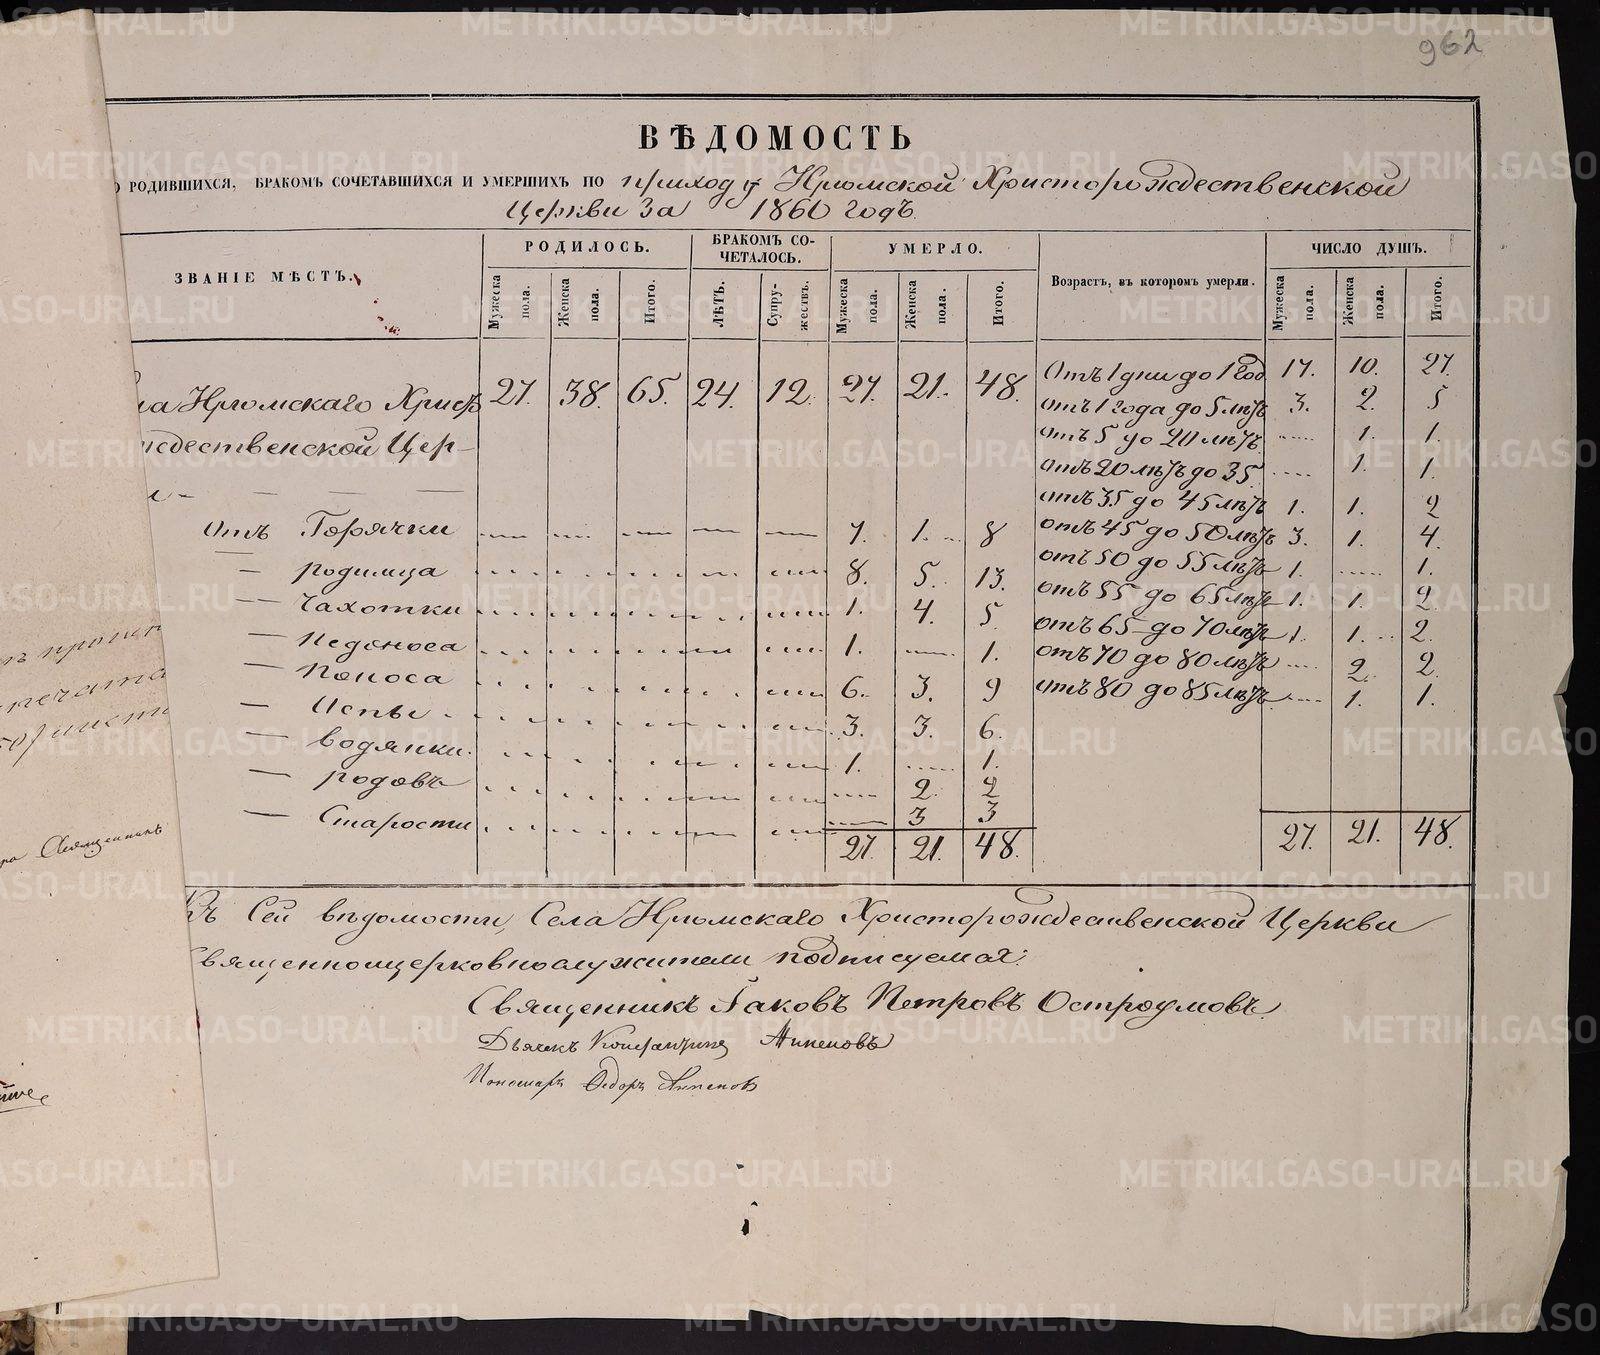 962
ВѢДОМОСТЬ
О РОДИВШИХСЯ, БРАКОМЪ СОЧЕТАВШИХСЯ И УМЕРШИХЪ ПО приходу Нромской Христорождественской
Церкви За 1860 годъ.
ЗВАНІЕ МѢСТЪ. РОДИЛОСЬ. БРАКОМЪ СОЧЕТАЛОСЬ. УМЕРЛО. Возрастъ, въ которомъ умерли. ЧИСЛО ДУШЪ.
Мужеска пола. Женска пола. Итого. ЛѢТЪ. Супружествъ. Мужеска пола. Женска пола. Итого. Мужеска пола. Женска пола. Итого.
ла Нромскаго Христо 27. 38. 65. 24. 12. 27. 21. 48. Отъ 1 дни до 1 год 17. 10. 27.
ждественской Цер- отъ 1 года до 5 лѣтъ 3. 2. 5
отъ 5 до 20 лѣтъ 1. 1.
отъ 20 лѣтъ до 35 1. 1.
отъ 35 до 45 лѣтъ 1. 1. 2
Отъ Горячки 7. 1. 8 отъ 45 до 50 лѣтъ 3. 1. 4.
— родимца 8. 5. 13. отъ 50 до 55 лѣтъ 1. 1.
— Чахотки 1. 4. 5. отъ 55 до 65 лѣтъ 1. 1. 2.
— Недоноса 1. 1. отъ 65 до 70 лѣтъ 1. 1. 2.
— Поноса 6. 3. 9 отъ 70 до 80 лѣтъ 2. 2.
— Оспы 3. 3. 6. отъ 80 до 85 лѣтъ 1. 1.
— водянки. 1. 1.
— родовъ 2. 2
— Старости 3 3
27. 21. 48. 27. 21. 48.
Къ Сей вѣдомости, Села Нромскаго Христорождественской Церкви
Священноцерковнослужители подписуемся:
Священникъ Іаковъ Петровъ Остроумовъ.
Дьячекъ Константинъ
Пономарь Ѳедоръ
Священникъ
METRIKI.GASO-URAL.RU